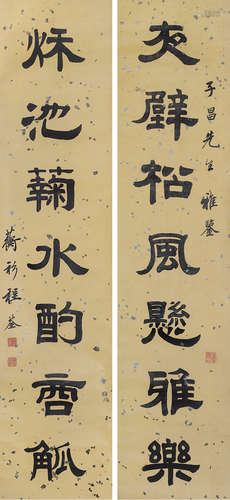 子昌先生雅鑒
夜壁松風懸雅樂
秌池蘜水酌香觚
蘅衫程荃